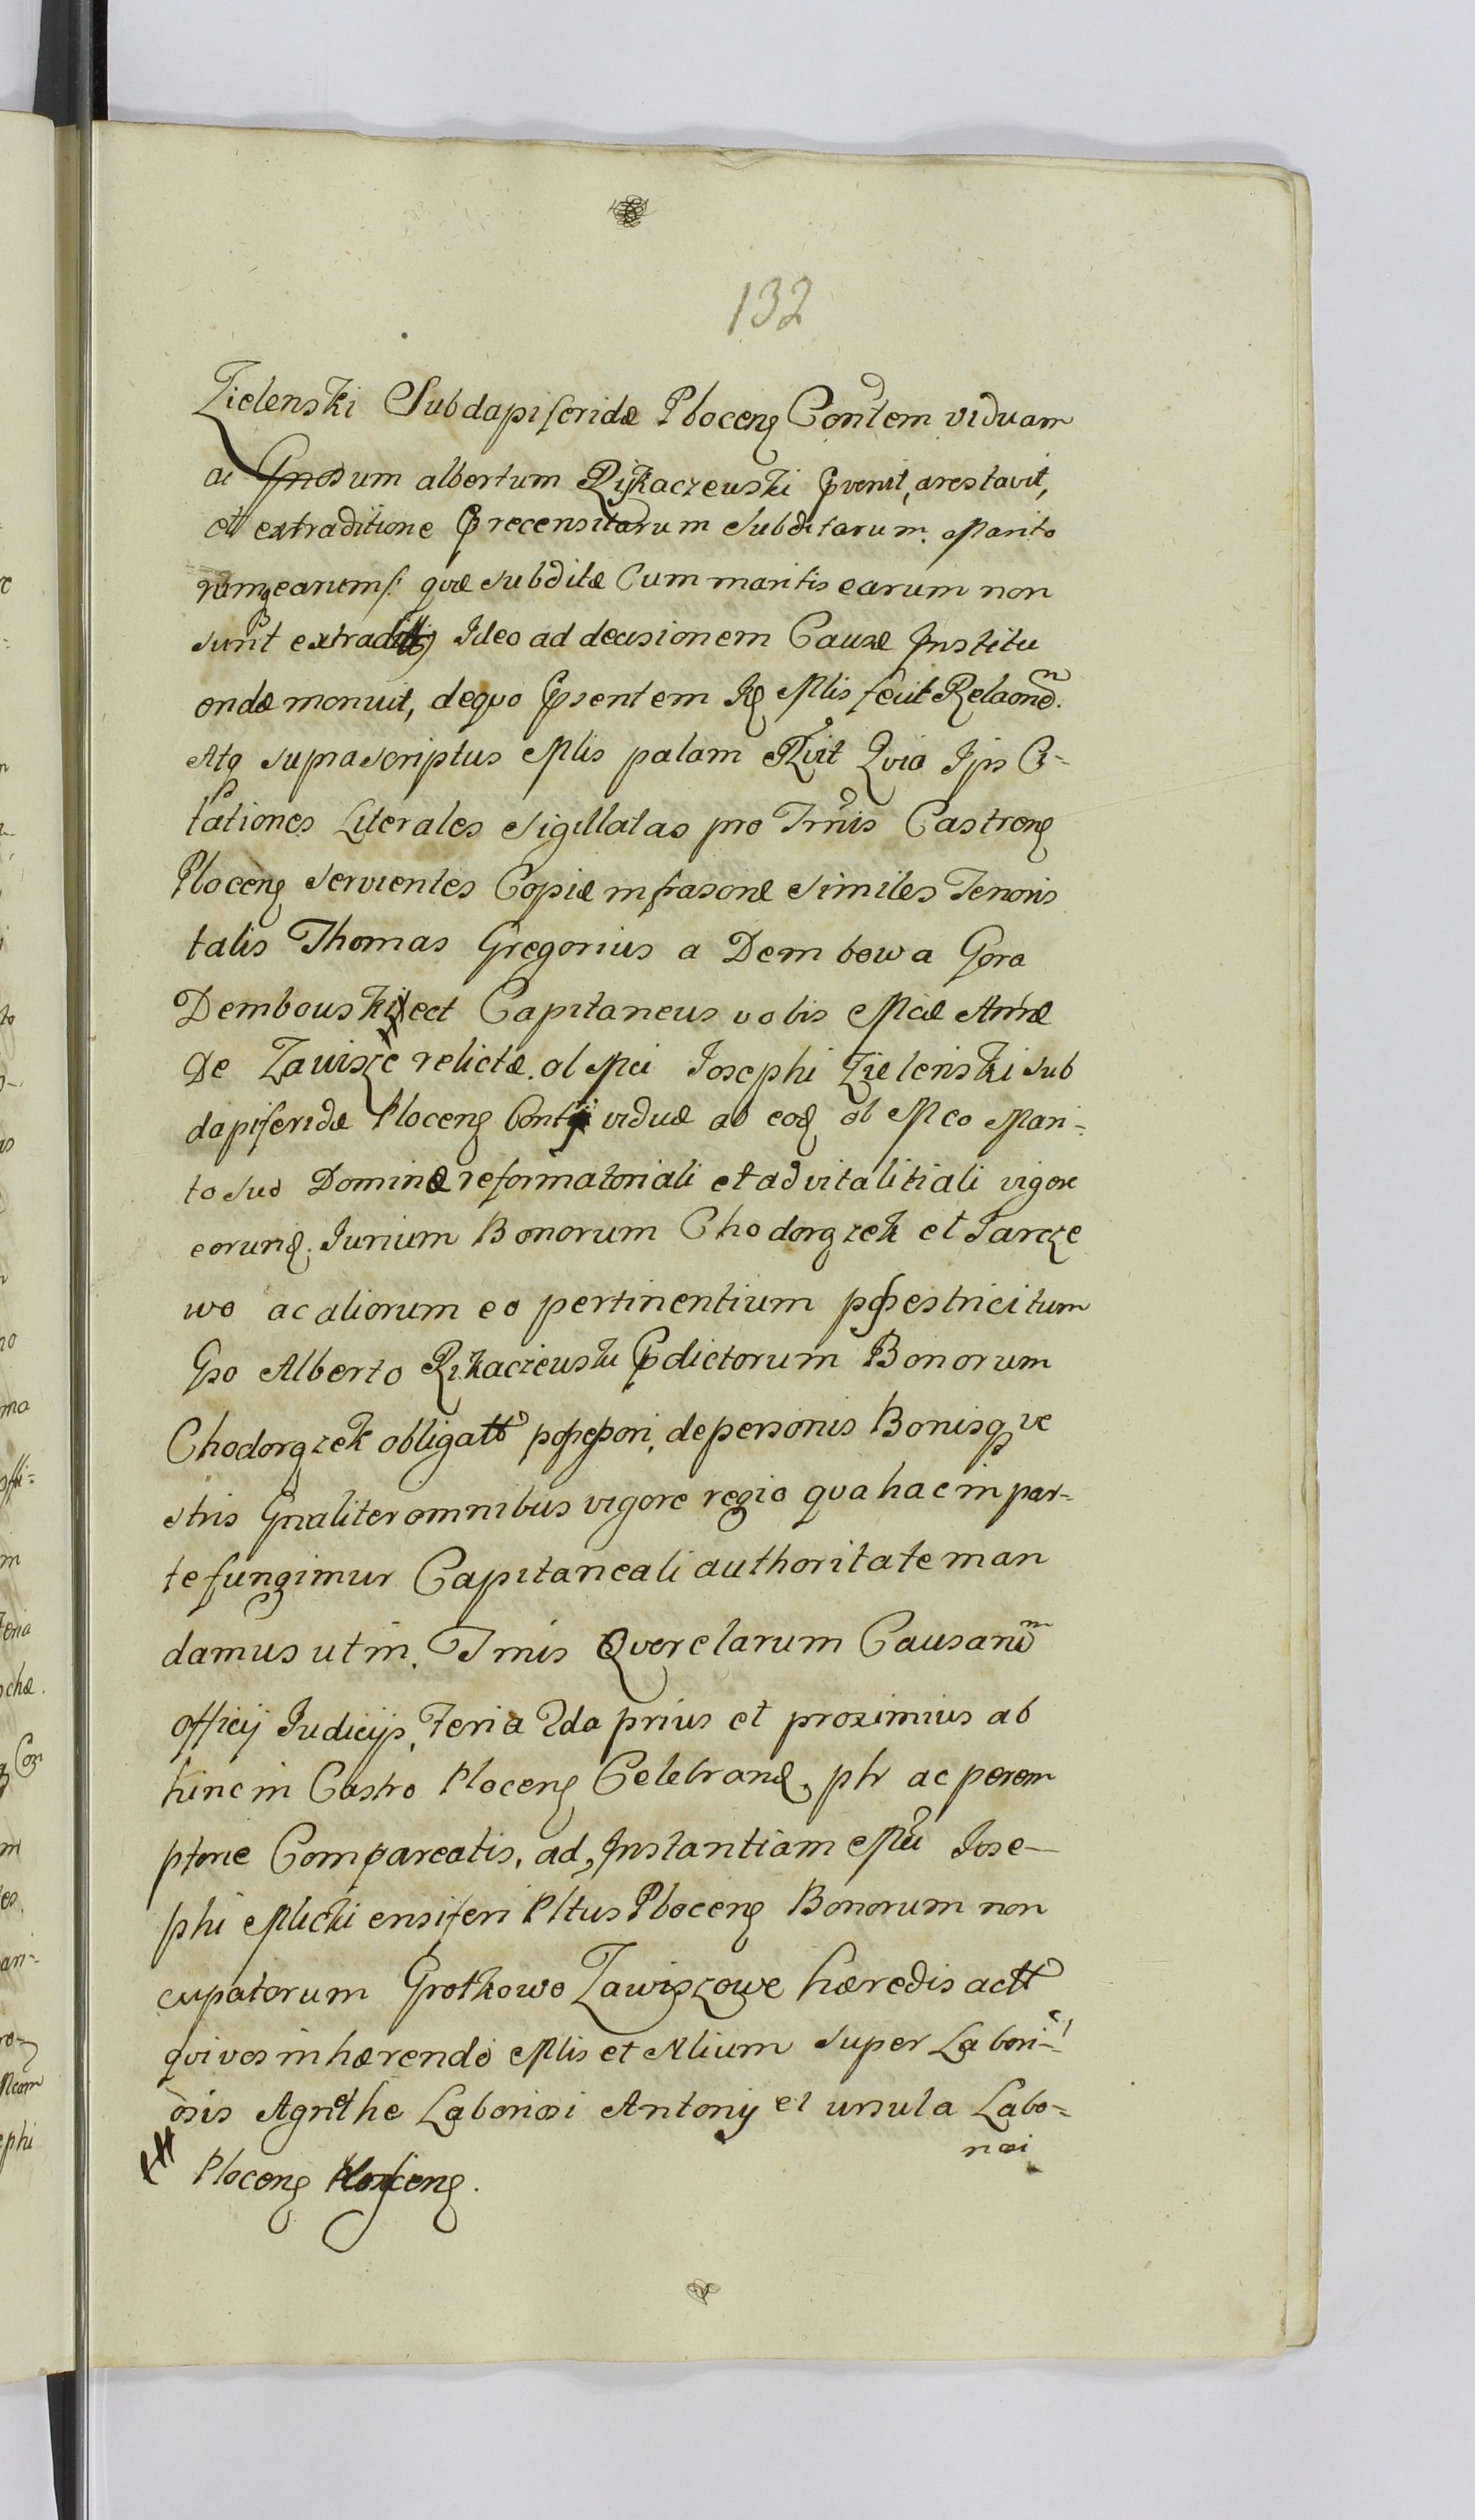 132
Zielenski Subdapiferidæ Ploceng Contem viduam
ac Gnosum albertum Rykaczewski pvenit, arestavit,
et extraditione precensitarum Subditarum Marito
rumq earum/: quæ subditæ Cum maritis earum non
sunt extradittæ Ideo ad decisionem Causæ Institu
endæ monuit, dequo Psentem Rg Mlis fecit Relaonem.
Atq suprascriptus Mlis palam Rcvit Qvia Ips Ci-
tationes Literales Sigillatas pro Trnis Castreng
Ploceng servientes Copiæ infrasonæ similes Tenoris
talis Thomas Gregorius a Dembowa Gora
Dembowski ect Capitaneus vobis Mcæ Annæ
De Zawisze relictæ ol Mci Josephi Zielenski sub
dapiferidæ Ploceng Contis viduæ ab eod ol Mco Mari-
to suo Dominæ reformatoriali et advitalitiali vigore
eorund Jurium Bonorum Chodorązek et Tarcze
wo ac aliorum eo pertinentium pssestricitum
Gso Alberto Rikaczewski Pdictorum Bonorum
Chodorązek obligatt possessori, depersonis Bonisq ve
stris Gnaliter omnibus vigore regia qva hac in par-
te fungimur Capitaneali authoritate man
damus ut in Trnis Qverelarum Causarum
officij Judicijs, Feria 2da prius et proximius ab
hinc in Castro Ploceng Celebrand. ptr ac perem
ptorie Compareatis, ad Instantiam Mci Jose-
phi Mlicki ensiferi Pltus Ploceng Bonorum non
cupatorum Grotkowo Zawiszowe hæredis actt
qvi vos inhærendo Mlis et Alium super Labori-
osis Agnethe Laboriosi Antonij et ursula Labo-
riosi
Ploceng